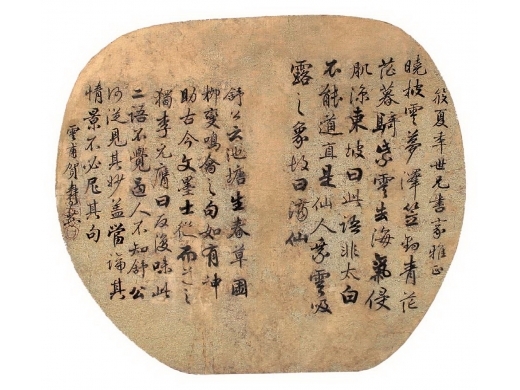 筱夏年世兄書家雅正
曉披雲夢澤笠釣青茫
茫暮騎紫雲去海氣侵
肌涼東坡曰此語非太白
不能道直是仙人裳雲吸
露之象坡曰謫仙
舒公云池塘生春草園
柳變鳴禽之句如有神
助古今文墨士從而道之
獨李元膺曰反復味此
二語不覺過人不知舒公
何從見其妙蓋當論其
情景不必尼其句
雲甫賀壽慈